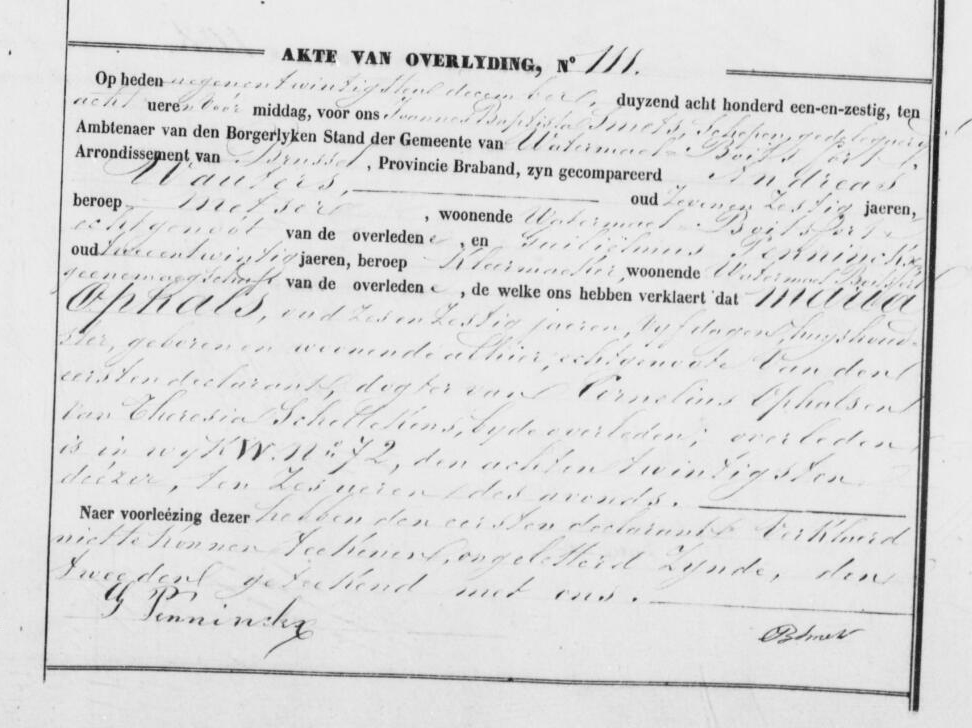 AKTE VAN OVERLYDING, N° 111.
Op heden negenentwintigsten december, duyzend acht honderd een-en-zestig, ten
acht ueren voor middag, voor ons Joannes Baptista Smets, Schepen, gedelegueerd
Ambtenaer van den Borgerlyken Stand der Gemeente van Watermael-Boitsfort,
Arrondissement van Brussel, Provincie Braband, zyn gecompareerd Andreas
Wauters, oud Zevenenzestig jaeren,
beroep metser, woonende Watermael-Boitsfort
echtgenoot van de overledene, en Guilielmus Penninckx
oud tweeentwintig jaeren, beroep Kleermaeker, woonende Watermael Boitsfort
geene maegschap van de overledene, de welke ons hebben verklaert dat Maria
Ophals, oud zesenzestig jaeren, vyf dagen, huyshoud-
ster, geboren en woonende alhier, echtgenoote van den
eersten declarant, dogter van Cornelius Ophals en
van Theresia Schellekens, beyde overleden; overleden
is in wyk W. N° 72, den achtentwintigsten
dezer, ten zes ueren des avonds.
Naer voorleézing dezer hebben den eersten declarant verklaerd
niet te konnen teekenen, ongeletterd zynde, den
tweeden geteekend met ons.
G Penninckx
BSmets